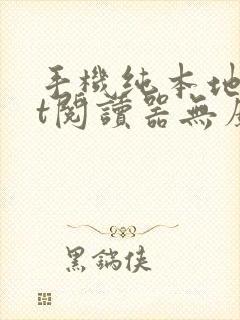 手機純本地
t閱讀器無
黑鍋俠